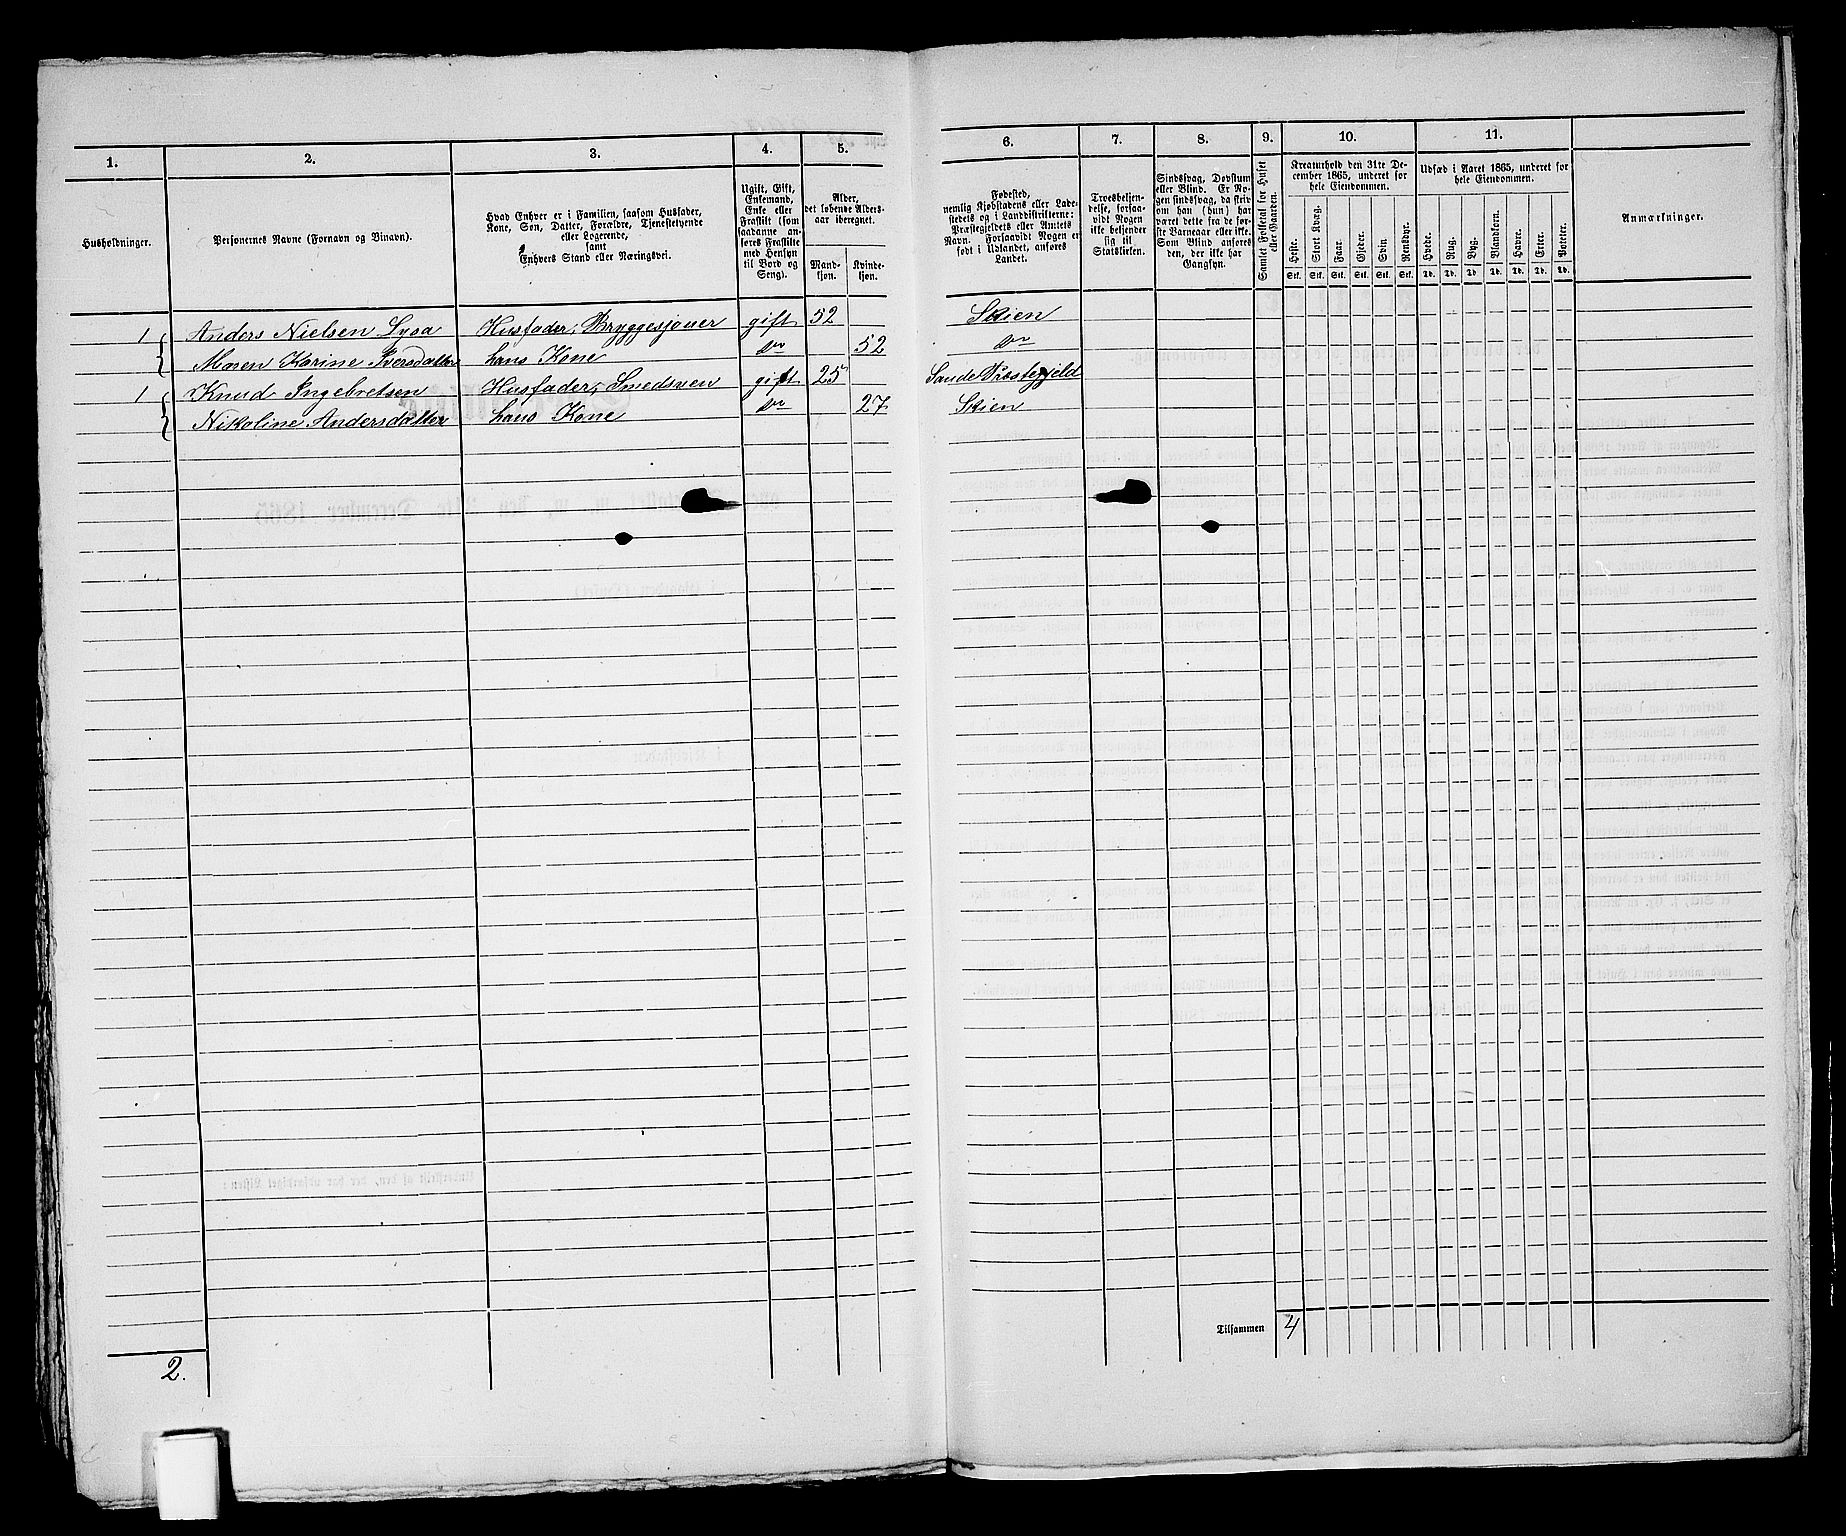 1. 2. 3. 4. 5. 6. 7. 8. 9. 10. 11.
Husholdninger.
Personernes Navne (Fornavn og Binavn).
Hvad Enhver er i Familien, saasom Husfader,
Kone, Søn, Datter, Forældre, Tjenestetyende
eller Logerende,
samt
Enhvers Stand eller Næringsvei.
Ugift, Gift,
Enkemand,
Enke eller
Fraskilt (som
saadanne an-
føres Fraskilte
med Hensyn
til Bord og
Seng).
Alder,
det løbende Alders-
aar iberegnet.
Mand-
kjøn.
Kvinde-
kjøn.
Fødested,
nemlig Kjøbstadens eller Lade-
stedets og i Landdistrikterne:
Præstegjeldets eller Amtets
Navn. Forsaavidt Nogen er
født i Udlandet, anføres
Landet.
Troesbekjen-
delse, forsaa-
vidt Nogen
ikke bekjender
sig til
Statskirken.
Sindssvag, Døvstum
eller Blind. Er No-
gen sindssvag, da skriv
om han (hun) har
været dette fra de før-
ste Barneaar eller ikke.
Som Blind anføres
den, der ikke har
Gangsyn.
Samlet Folketal for Huset
eller Gaarden.
Kreaturhold den 31te De-
cember 1865, underet for
hele Eiendommen.
Heste. Stort Kvæg. Faar. Gjeder. Svin. Rensdyr.
Stk. Stk. Stk. Stk. Stk. Stk.
Udsæd i Aaret 1865, underet for
hele Eiendommen.
Hvede. Rug. Byg. Blandkorn. Havre. Erter. Poteter.
Td. Td. Td. Td. Td. Td. Td.
Anmærkninger.
1 Anders Nielsen Lysa Husfader, Bryggesjouer gift 52 Skien
Maren Karine Iversdatter hans Kone do 52 do
1 Knud Ingebretsen Husfader, Smedsven gift 25 Sande Præstegjeld
Nikoline Andersdatter hans Kone do 27 Skien
Tilsammen 4
2.